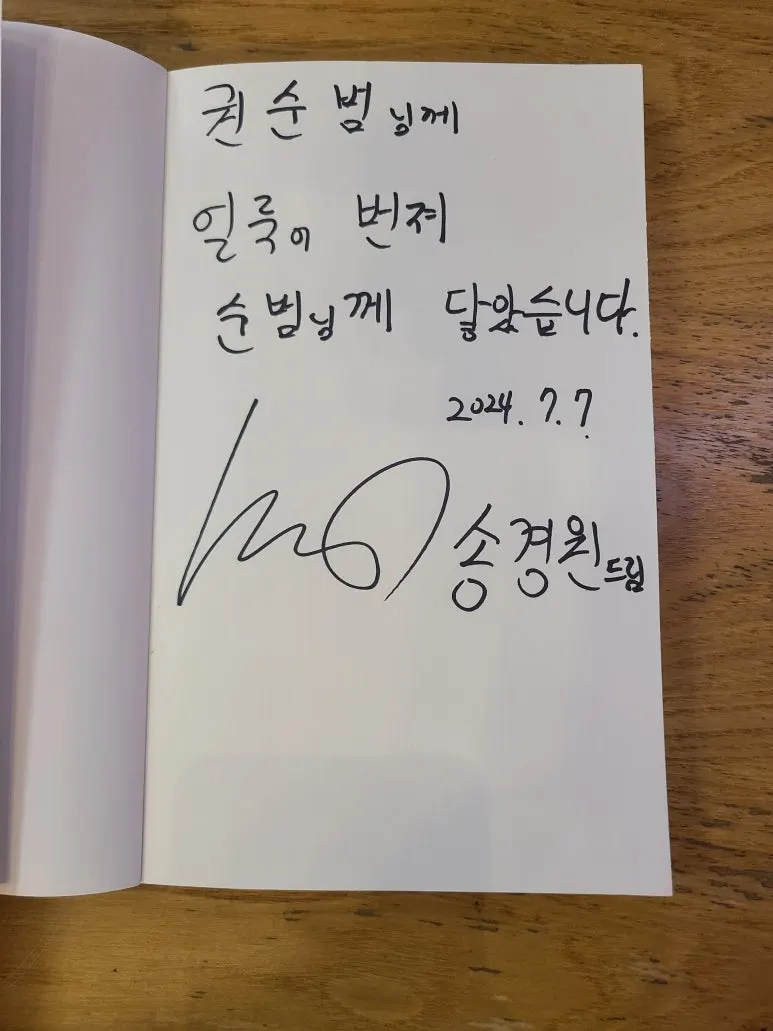 권순범님께
얼룩이 번져
순범님께 닿았습니다.
2024. 7. 7
송경원 드림